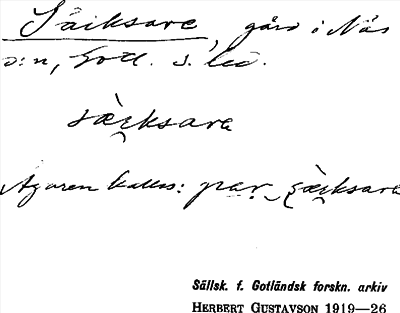 Säiksare, gård i Näs
s:n, Gotl. s. hd.
sæ̀i̯ksara
Ägaren kallas: par sæ̀i̯ksara
Sällsk. f. Gotländsk forskn. arkiv
HERBERT GUSTAVSON 1919—26